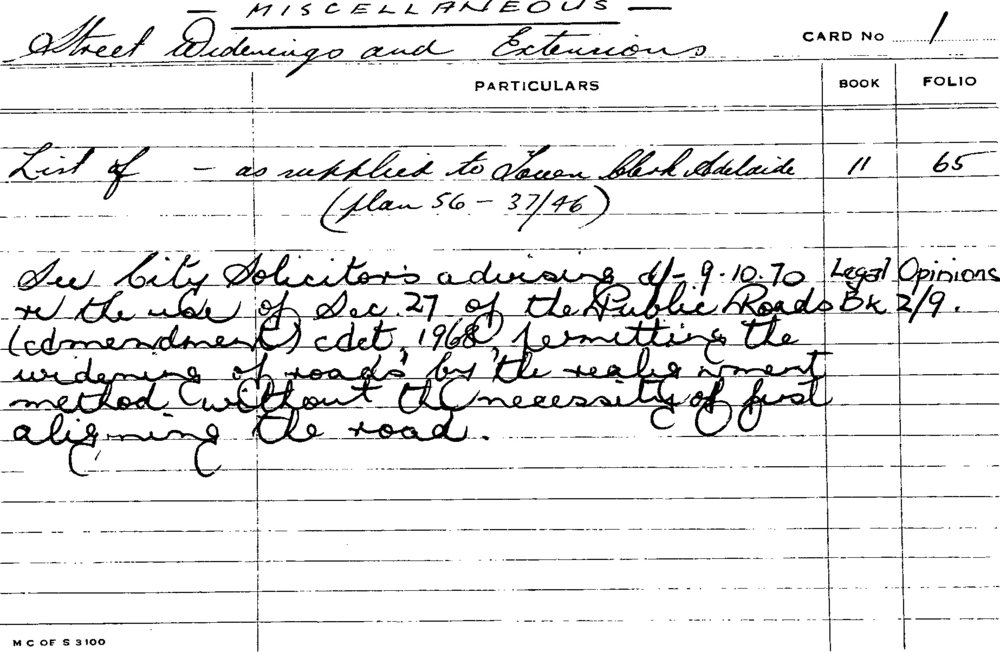 — MISCELLANEOUS —
Street Widenings and Extensions CARD No 1
PARTICULARS BOOK FOLIO
List of - as supplied to Town Clerk Adelaide 11 65
(plan 56 - 37/46)
See City Solicitors advising d/- 9.10.70 Legal Opinions
re the use of Sec. 27 of the Public Roads Bk 2/9.
(Amendment) Act, 1968, permitting the
widening of roads by the realignment
method without the necessity of first
aligning the road.
M C OF S 3100